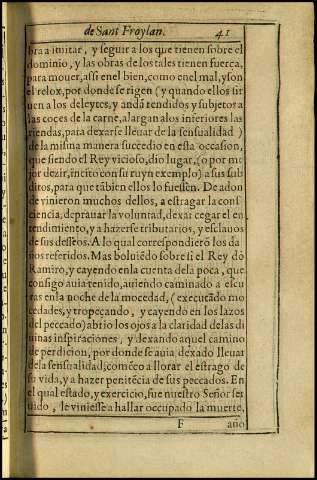 de Sant Froylan. 41
bra a imitar, y seguir a los que tienen sobre el
dominio, y las obras de los tales tienen fuerça,
para mouer, assi en el bien, como en el mal, y son
el relox, por donde se rigen (y quando ellos sir
uen a los deleytes, y andã rendidos y subjetos a
las coces de la carne, alargan a los inferiores las
riendas, para dexarse lleuar de la sensualidad)
de la misma manera succedio en esta occasion,
que siendo el Rey vicioso, dio lugar, (o por me
jor dezir, incito con su ruyn exemplo) a sus sub
ditos, para que tãbien ellos lo fuessen. De adon
de vinieron muchos dellos, a estragar la cons-
ciencia, deprauar la voluntad, dexar cegar el en
tendimiento, y a hazerse tributarios, y esclauos
de sus desseos. A lo qual correspondierõ los da
ños referidos. Mas boluiẽdo sobre si el Rey dõ
Ramiro, y cayendo en la cuenta de la poca, que
consigo auia tenido, auiendo caminado a escu
ras en la noche de la mocedad, (executãdo mo
cedades, y tropeçando, y cayendo en los lazos
del peccado) abrio los ojos a la claridad de las di
uinas inspiraciones, y dexando aquel camino
de perdicion, por donde se auia dexado lleuar
de la sensualidad, comẽço a llorar el estrago de
su vida, y a hazer penitẽcia de sus peccados. En
el qual estado, y exercicio, fue nuestro Señor ser
uido, le viniesse a hallar occupado la muerte,
F año